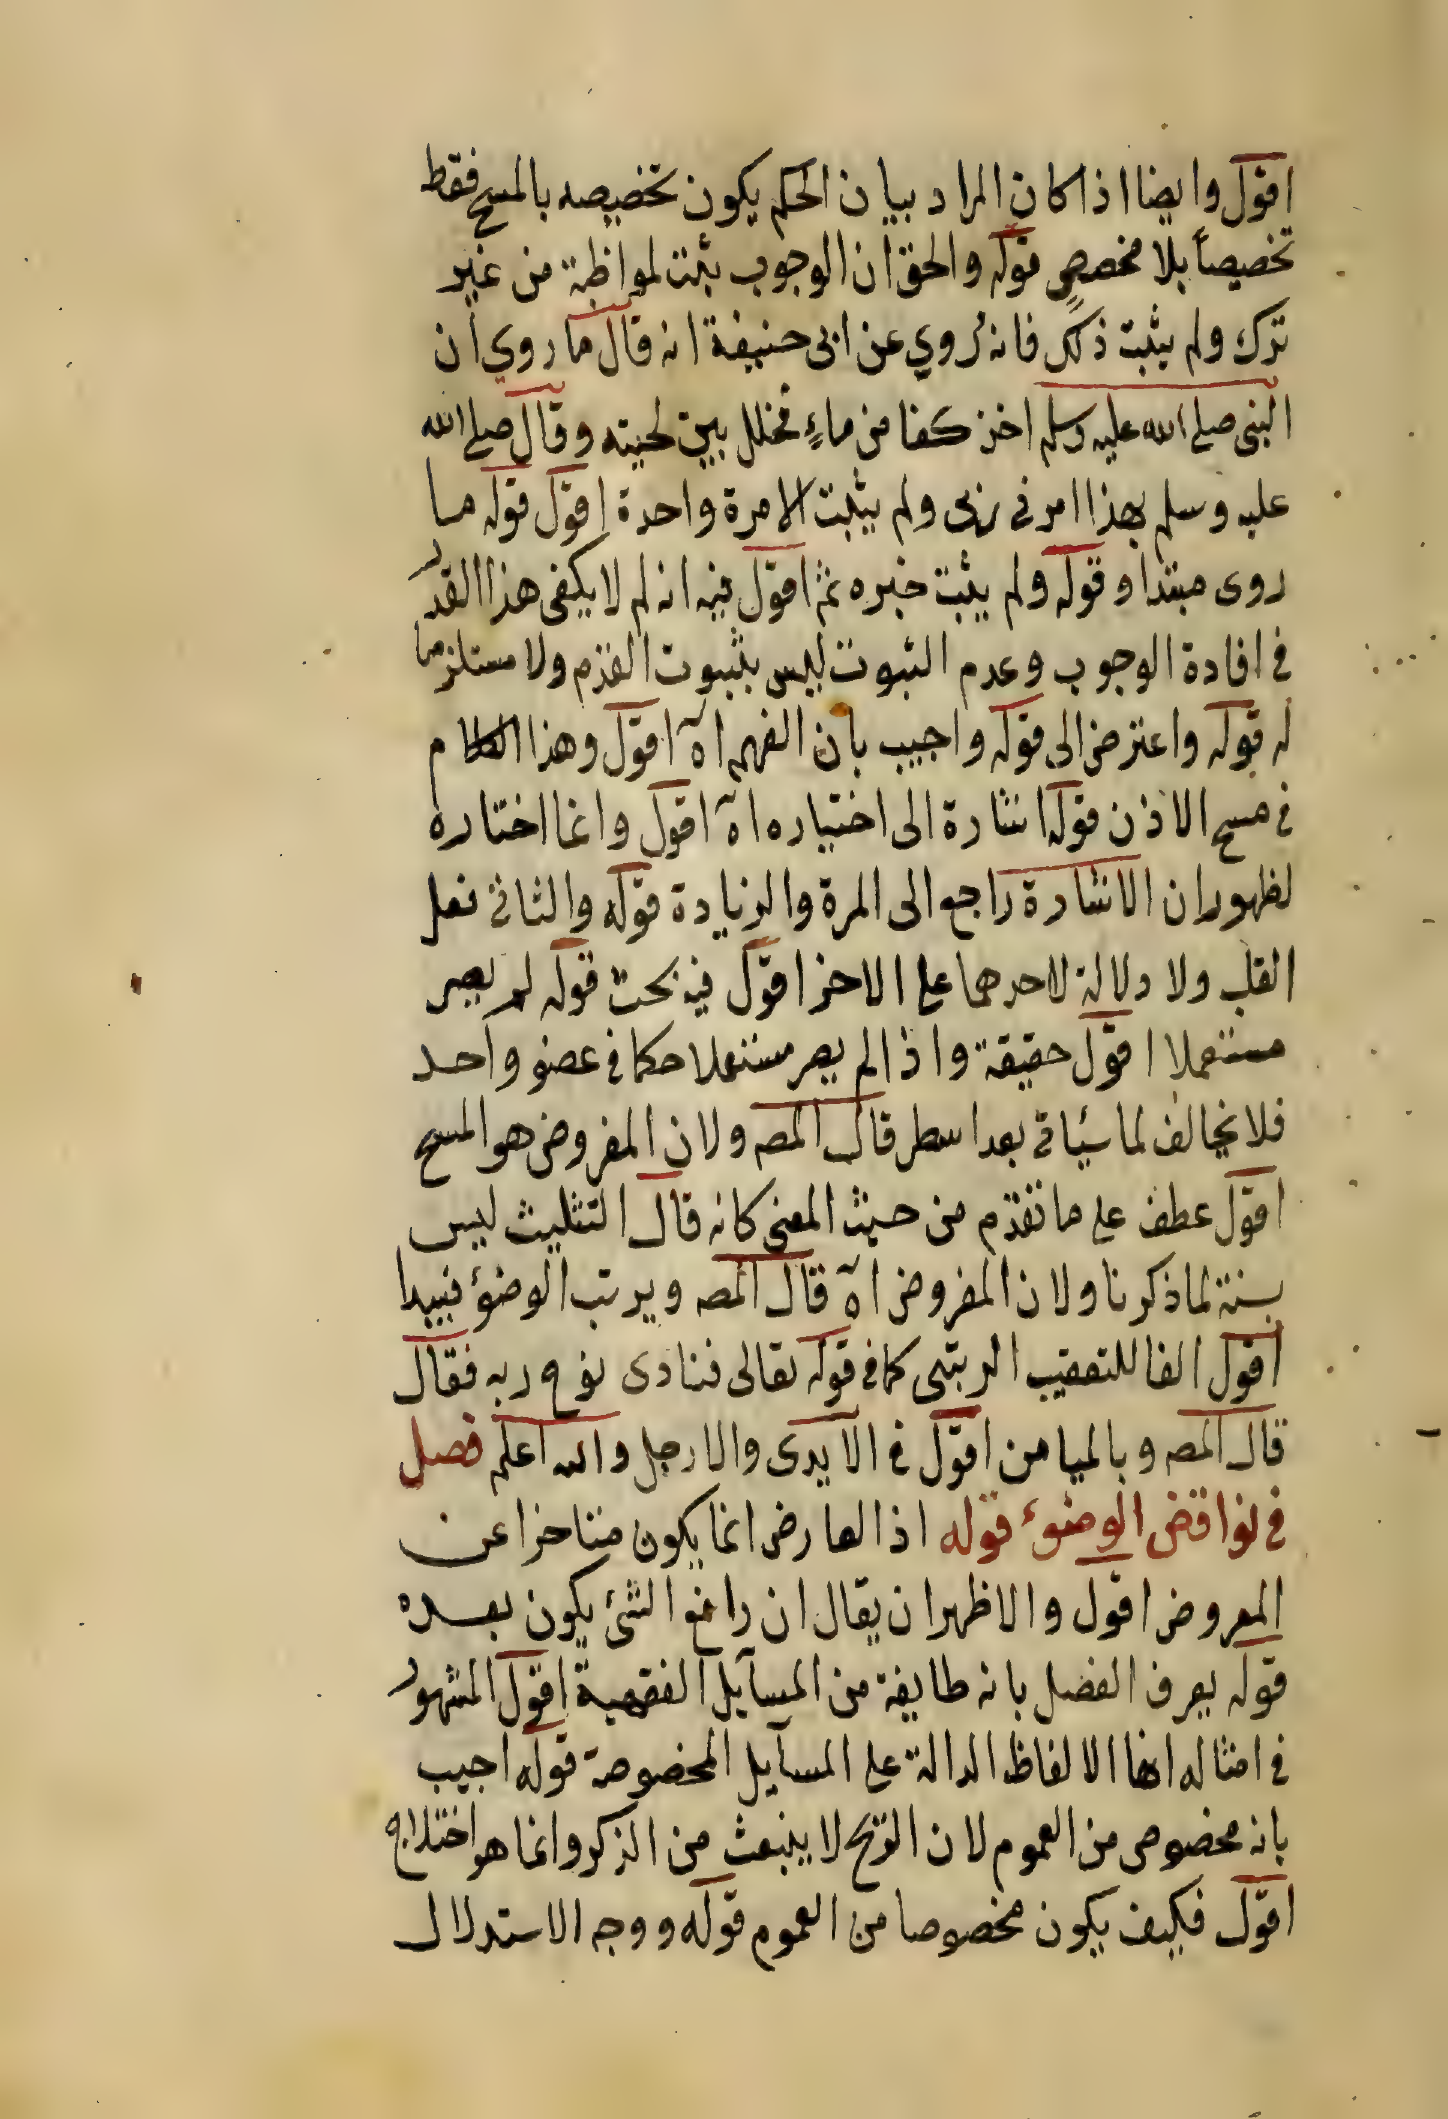 اقول وايضا اذا كان المراد بيان الحكم يكون تخصيصه بالمسح فقط
تخصيصاً بلا مخصصٍ قوله والحق ان الوجوب يثبت لمواظبة من غير
ترك ولم يثبت ذلك فانه رُوي عن ابى حنيفة انه قال ما روي ان
النبى صلى الله عليه وسلم اخذ كفا من ماءٍ فخلل بين لحيته وقال صلى الله
عليه وسلم بهذا امرنى ربى ولم يثبت الا مرة واحدة اقول قوله ما
روى مبتدا وقوله ولم يثبت خبره ثم اقول فيه انه لم لا يكفى هذا القدر
فى افادة الوجوب وعدم الثبوت ليس بثبوت القدم ولا مستلزما
له قوله واعترض الى قوله واجيب بان الفهم اه اقول وهذا الكلام
فى مسح الاذن قوله اشارة الى اختياره اه اقول وانما اختاره
لظهور ان الاشارة راجع الى المرة والزيادة قوله والثانى فعل
القلب ولا دلالة لاحدهما على الاخر اقول فيه بحث قوله لم يصر
مستعملا اقول حقيقة واذا لم يصر مستعملا حكما فى عضو واحد
فلا يخالف لما سيأتى بعد اسطر قال المصه ولان المفروض هو المسح
اقول عطف على ما تقدم من حيث المعنى كانه قال التثليث ليس
بسنة لما ذكرنا ولان المفروض اه قال المصه ويرتب الوضوء فيبدا
اقول الفا للتعقيب الرتبى كما فى قوله تعالى فنادى نوح ربه فقال
قال المصه وبالميامن اقول فى الايدى والارجل والله اعلم فصل
فى نواقض الوضوء قوله اذ العارض انما يكون متاخرا عن
المعروض اقول والاظهر ان يقال ان رافع الشئ يكون بعده
قوله يعرف الفصل بانه طايفة من المسآيل الفقهية اقول المشهور
فى امثاله انها الالفاظ الدالة على المسآيل المخصوصة قوله اجيب
بانه مخصوص من العموم لان الريح لا ينبعث من الذكر وانما هو اختلاج
اقول فكيف يكون مخصوصا من العموم قوله ووجه الاستدلال